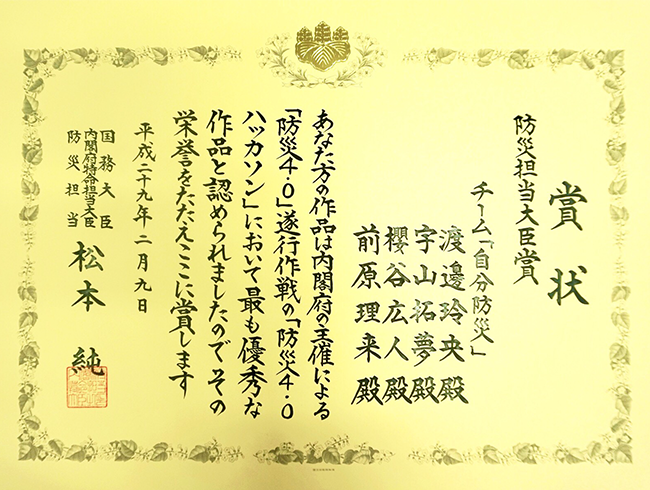 賞状
防災担当大臣賞
チーム「自分防災」
渡邉玲央殿
宇山拓夢殿
櫻谷広人殿
前原理来殿
あなた方の作品は内閣府の主催による
「防災4.0」遂行作戦の「防災4.0
ハッカソン」において最も優秀な
作品と認められましたのでその
栄誉をたたえここに賞します
平成二十九年二月九日
国務大臣
内閣府特命担当大臣
防災担当
松本純